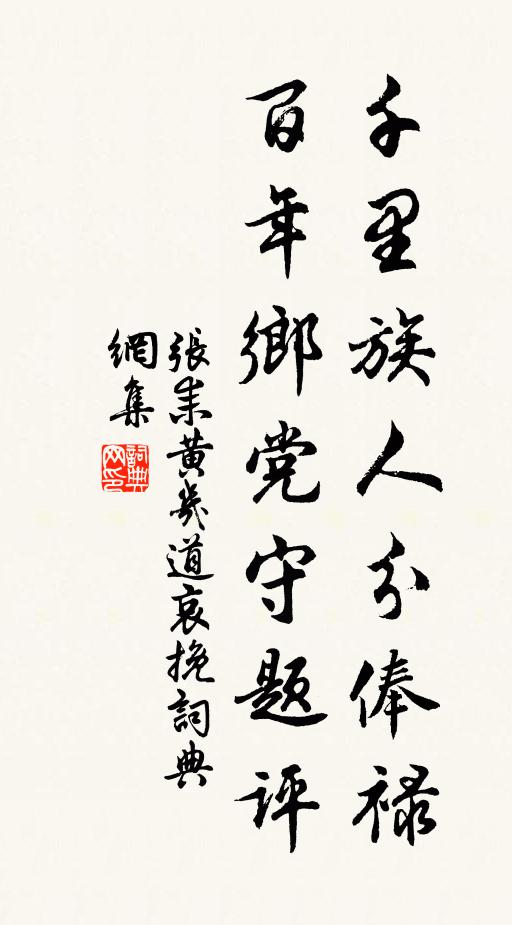 千里族人分俸禄
百年鄉党守题评
張耒黄幾道哀挽詞典
網集
詞典
网印